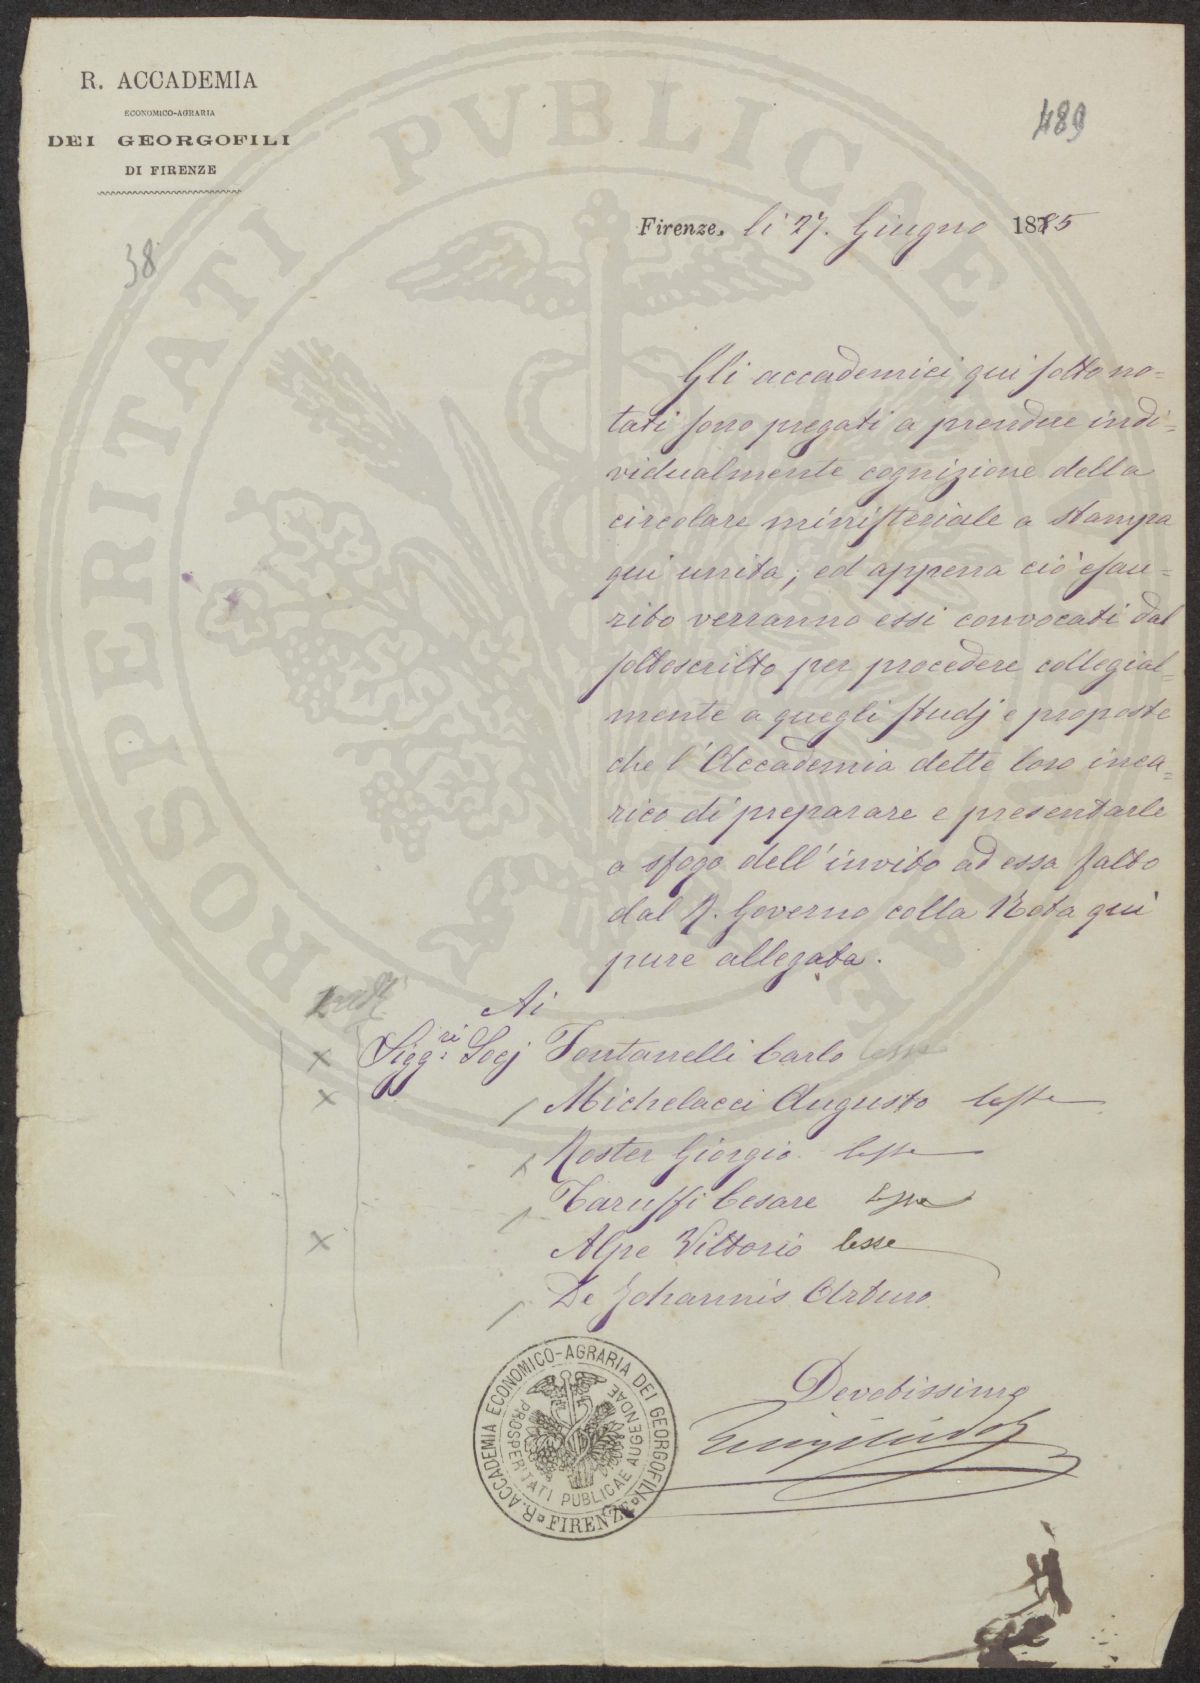 R. ACCADEMIA
ECONOMICO-AGRARIA
DEI GEORGOFILI
DI FIRENZE
489
38
Firenze, li 27. Giugno 1885
Gli accademici qui sotto no=
tati sono pregati a prendere indi=
vidualmente cognizione della
circolare ministeriale a stampa
qui unita; ed appena ciò esau=
rito verranno essi convocati dal
sottoscritto per procedere collegial=
mente a quegli studj e proposte
che l'Accademia dette loro inca=
rico di preparare e presentarle
a sfogo dell'invito ad essa fatto
dal R. Governo colla Nota qui
pure allegata.
Ai
Sigg.ri Socj Fontanelli Carlo lesse
Michelacci Augusto lesse
Roster Giorgio lesse
Taruffi Cesare lesse
Alpe Vittorio lesse
De Johannis Arturo
Devotissimo
R. ACCADEMIA ECONOMICO-AGRARIA DEI GEORGOFILI
FIRENZE
PROSPERITATI PUBLICAE AUGENDAE
PROSPERITATI PVBLICAE AVGENDAE